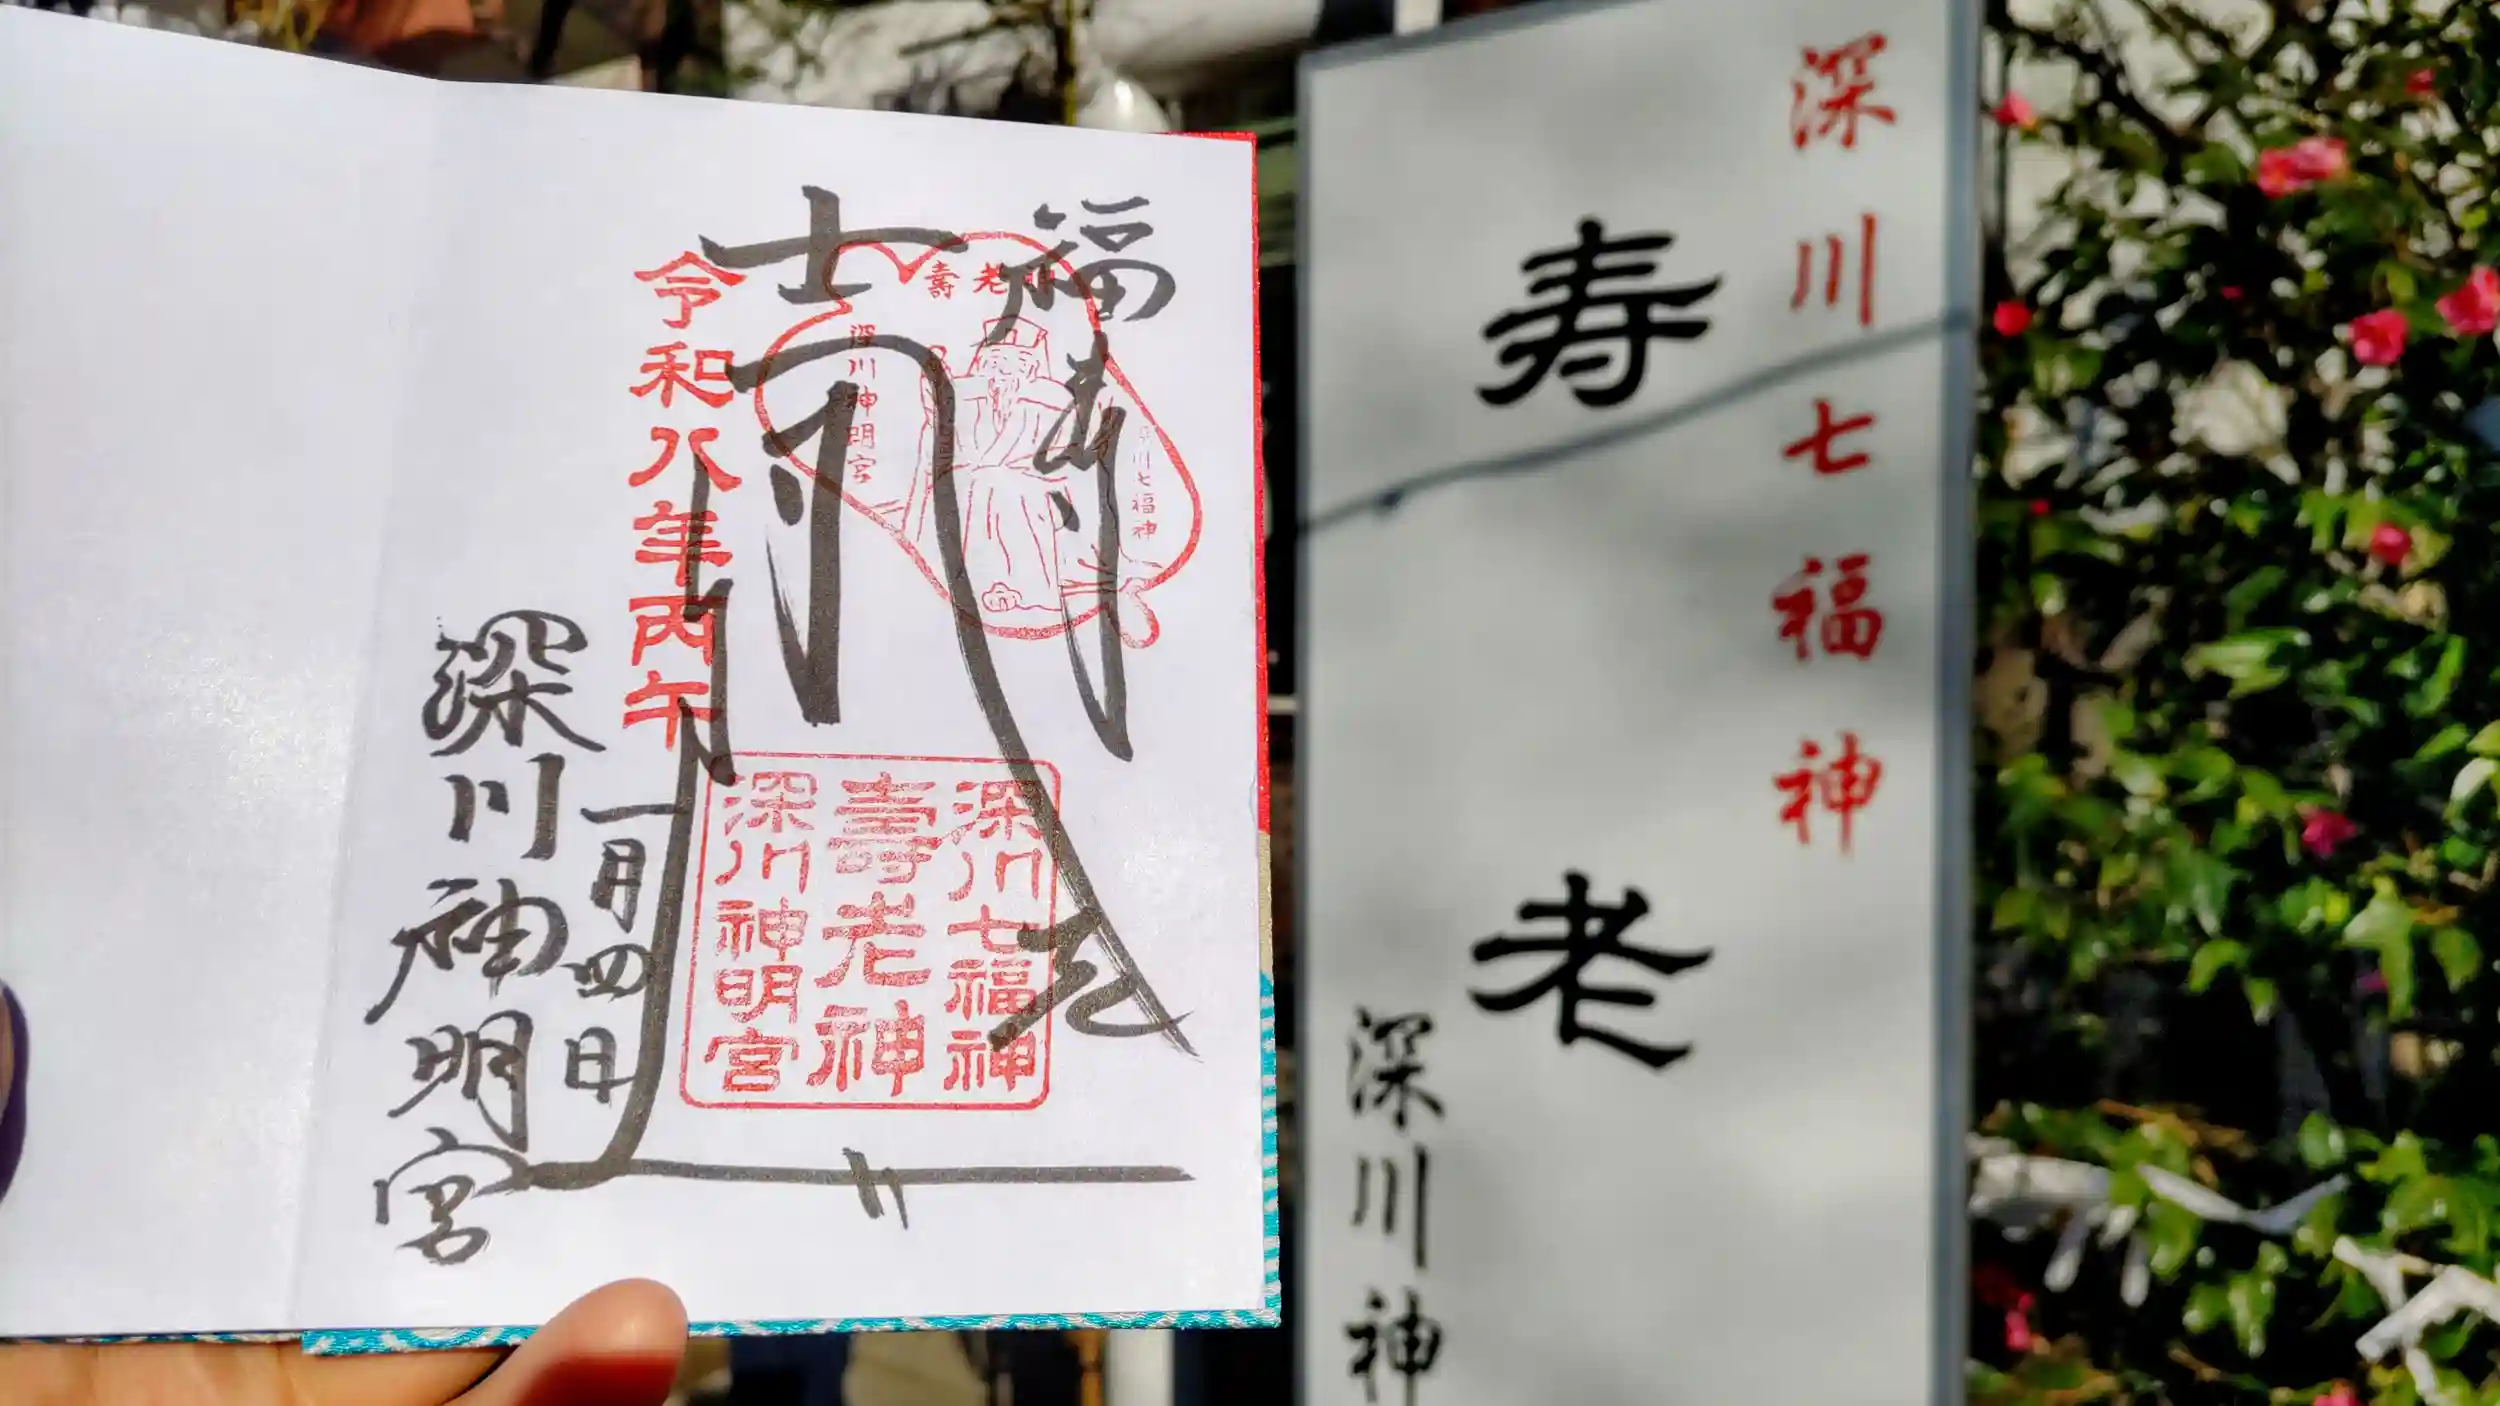 福寿
壽老神
深川七福神
深川神明宮
令和八年丙午
深川七福神
壽老神
深川神明宮
一月四日
深川神明宮
深川七福神
寿老
深川神